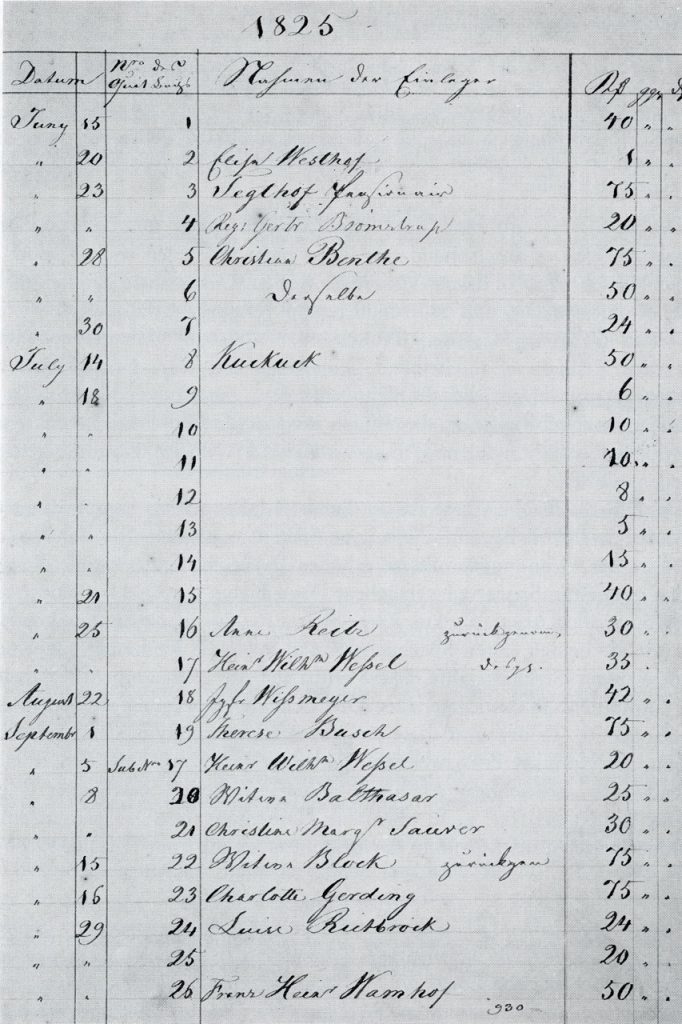 1825
Datum Nro der Nahmen der Einleger ggr
Juny 15 1 40 " "
" 20 2 Elise Westhof 1 " "
" 23 3 Tegthof Pensionair 75 " "
" " 4 Gertr Bromstrup 20 " "
" 28 5 Christian Benthe 75 " "
" " 6 Derselbe 50 " "
" 30 7 24 " "
July 14 8 Kuckuck 50 " "
" 18 9 6 " "
" " 10 10 " "
" " 11 10 " "
" " 12 8 " "
" " 13 5 " "
" " 14 15 " "
" 21 15 40 " "
" 25 16 Anne zurückgenom. 30 " "
" " 17 Heinr Wilhm Weßel desgl. 35
August 22 18 Jgfr Wißmeyer 42 " "
Septembr 1 19 Therese Busch 75 " "
" 5 Sub Nro 17 Heinr Wilhm Weßel 20 " "
" 8 20 Witwe Balthasar 25 " "
" " 21 Christine Margr Sauver 30 " "
" 15 22 Witwe Block zurückgen 75 " "
" 16 23 Charlotte Gerding 75 " "
" 29 24 Luise Rietbrock 24 " "
" " 25 20 " "
" " 26 Franz Heinr Wamhof 50 " "
930